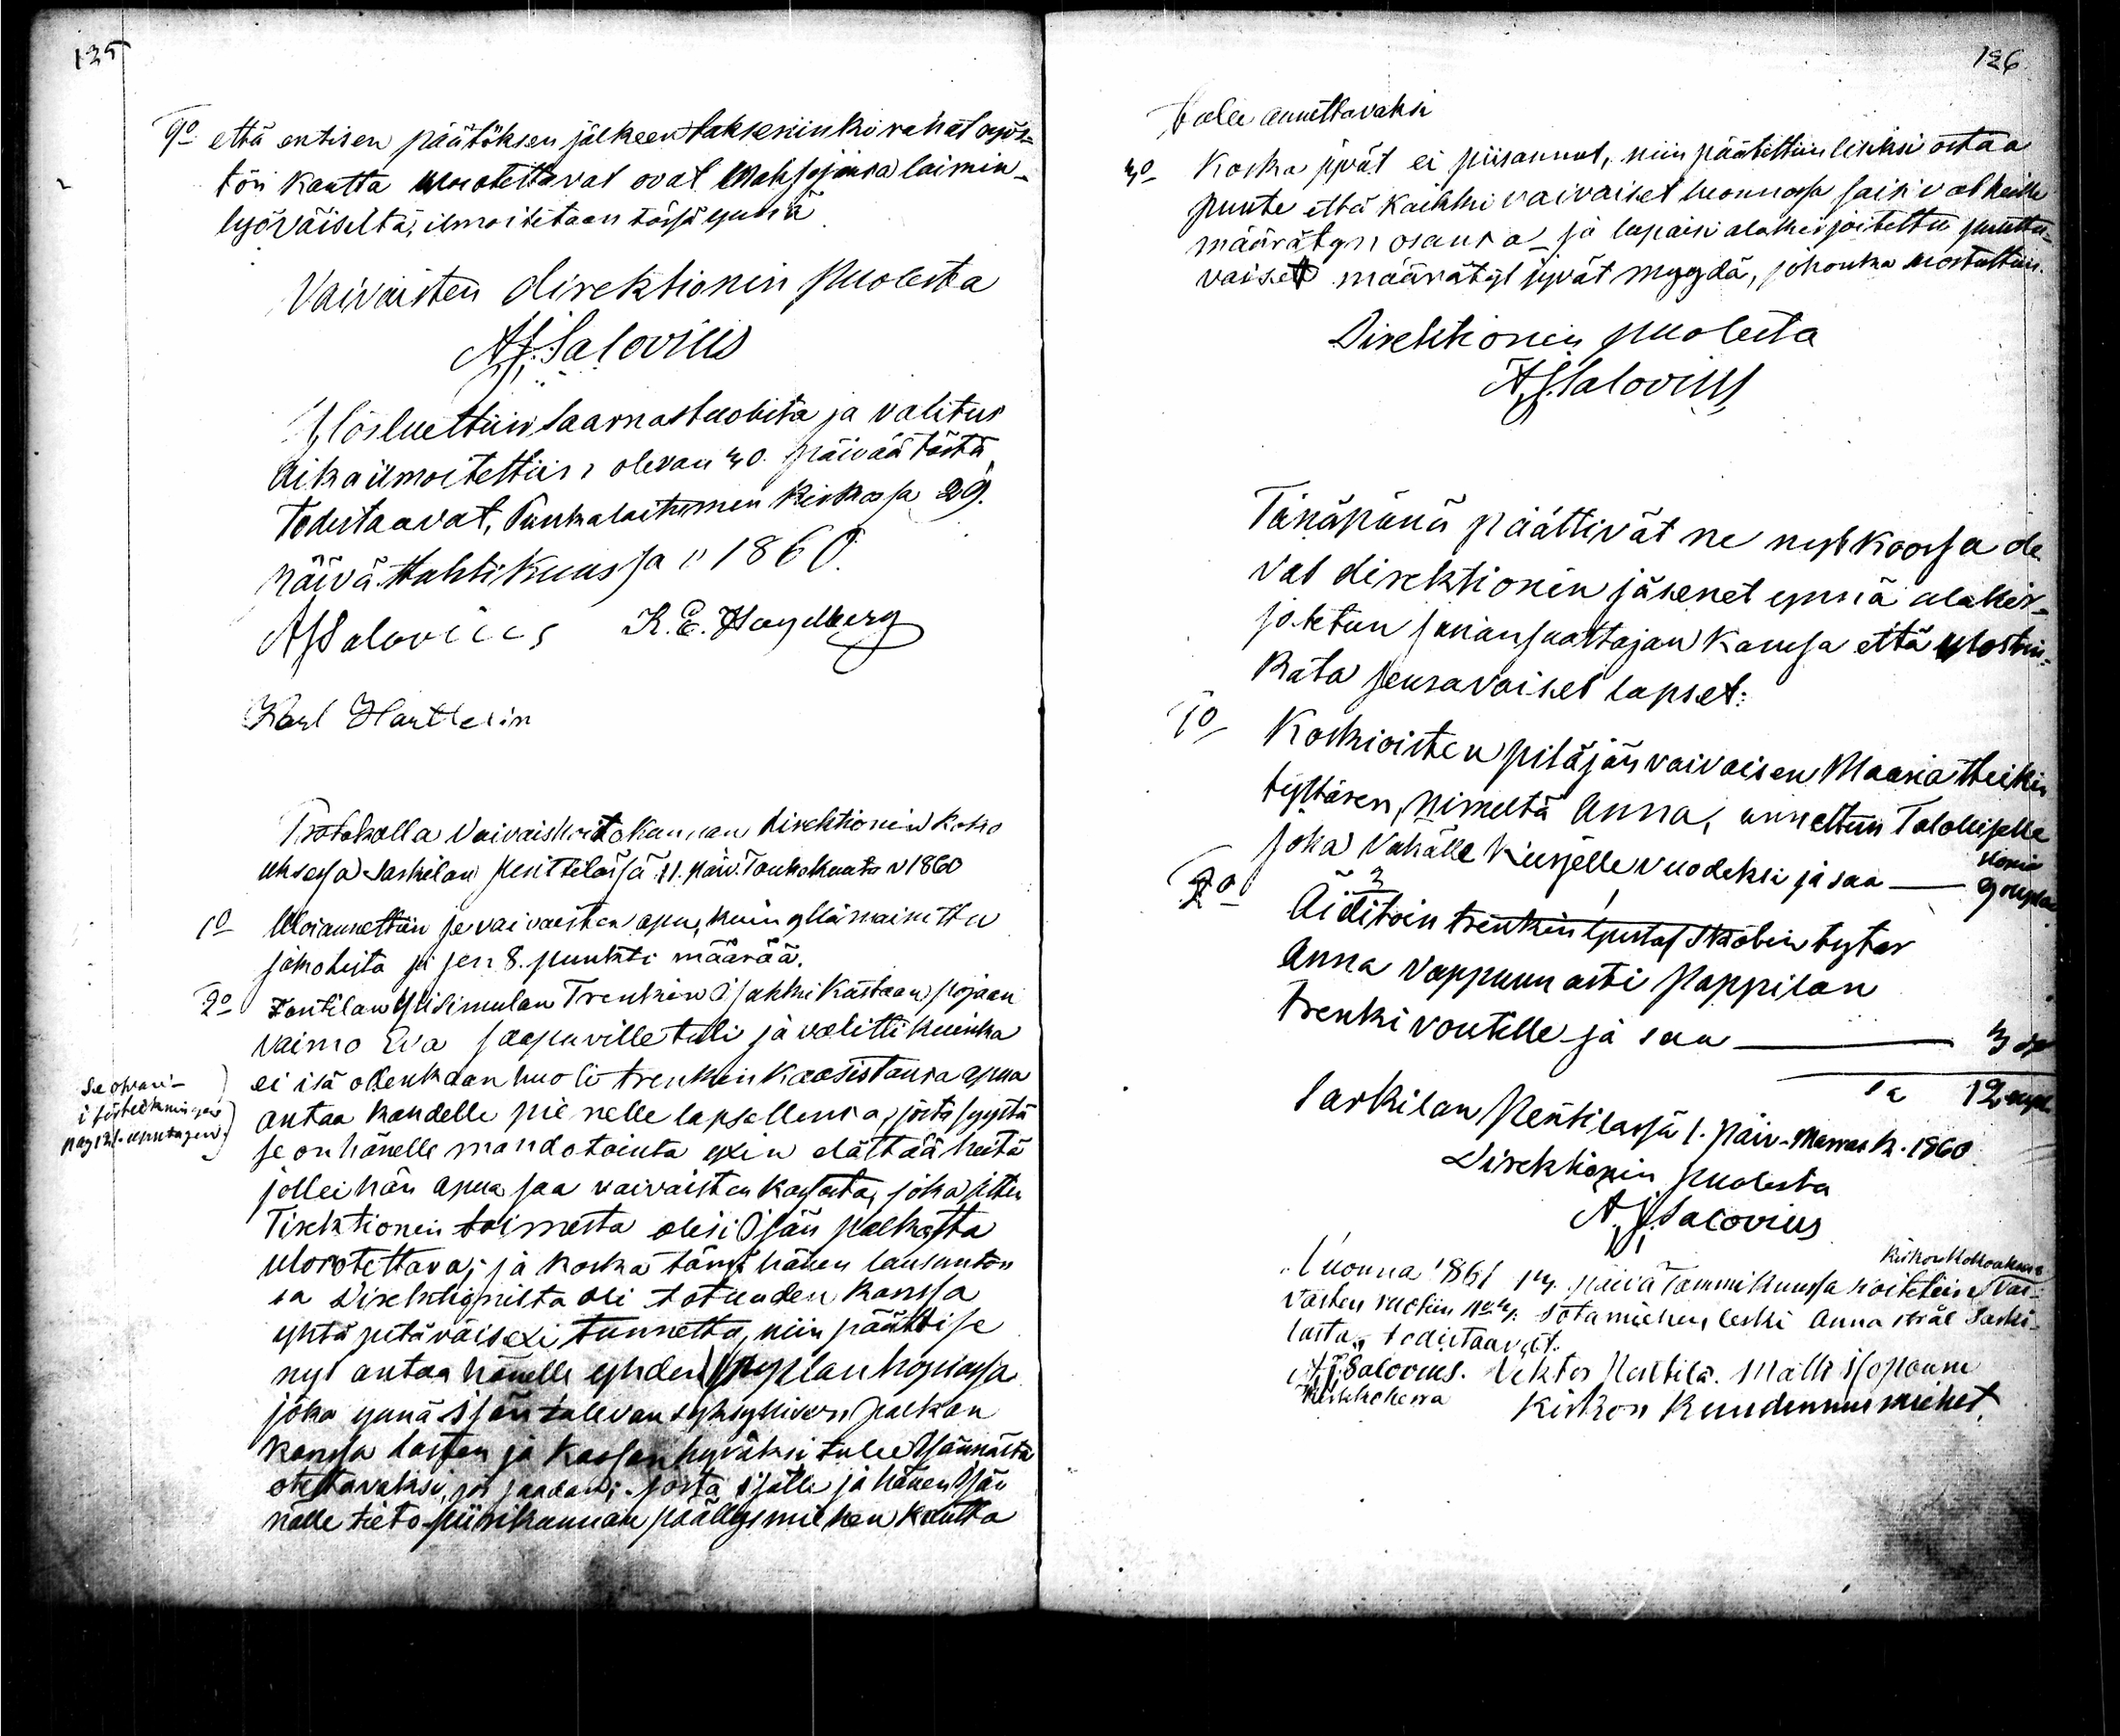 125
9o että entisen päätöksen jälkeen takseninki rahat ryös-
tön kautta ulosotettavat ovat Maksojansa laimin-
lyöväiseltä, ilmoitetaan tässä ynnä
Vaivaisten direktionin puolesta
AJSalovius
Ylösluettiin saarnastuolista ja valitus
aika ilmoitettiin olevan 30. päivää tästä,
todistaavat, Punkalaitumen kirkossa 29.
päivä Huhtikuussa v 1860.
AJSalovius K. E. Hagelberg
Karl Hartlelin
Protokolla Vaivaishoitokunnan direktionin koko
uksessa Sarkilan Penttilässä 11. päiv. Toukokuuta v 1860
1o Ulosannettiin se vaivaisten apu, kuin yllämainittu
jakolista ja sen 8. punkti määrää.
2o Yli-Simulan Trenkin Isakki Kustaan pojan
vaimo Eva saapuville tuli ja valitti kuinka
ei isä ollenkaan huoli trenkin kaasistansa apua
antaa kandelle pienelle lapsellensa, josta syystä
se on hänelle mahdotointa yxin elättää heitä
jollei hän apua saa vaivaisten kassasta, joka sitten
Direktionin toimesta olisi Isän palkasta
ulosotettava; ja koska tämä hänen lausunton
sa Direktionilta oli totuuden kanssa
yhtäpitäväisexi tunnettu, niin päätti se
nyt antaa hänelle yhden ruplan hopiassa
joka ynnä Isän tulevan syksyllisen palkan
kanssa lasten ja kassan hyväksi tulee Isännältä
otettavaksi, jos saadaan; josta Isälle ja hänen Isän
nälle tieto piirikunnan päällysmiehen kautta
Se ofvan-
i förteckningen
pag 121. upptagen.
126
tulee annettavaksi
3o Koska jyvät ei piisannut, niin päätettiin lisäksi ostaa
puute että kaikki vaivaiset luonnossa saisivat heille
määrätyn osansa ja lupaisi alakirjoitettu puuttu-
vaiset määrätyt jyvät myydä, johonka suostuttiin.
Direktionin puolesta
AJSalovius
Tänäpänä päättivät ne nyt koossa ole
vat direktionin jäsenet ynnä alakir-
joitetun esimiehen kanssa että ulostin-
kata seuraavaiset lapset:
1o Koskioisten pitäjän vaivaisen Maaria Heikin
tyttären, nimeltä Anna, annettiin Talolliselle
Joka Vähälle Kurjelle vuodeksi ja saa — 9 rupla
2o Äiditöin trenkin Gustaf Stöbin tytär
Anna Vappuun asti Pappilan
trenki voutille ja saa — 3 do
Sa 12 rupl.
Sarkilan Penttilässä 1. päiv. Marrask. 1860
Direktionin puolesta
AJSalovius
Vuonna 1861 päivä Tammikuussa
Sotamiehen leski Anna Stråt Sarki-
lasta, todistaavat.
AJSalovius. Viktor Knutila. Matti Isopoune
Kirkkoherra Kirkon Kuudennusmiehet.